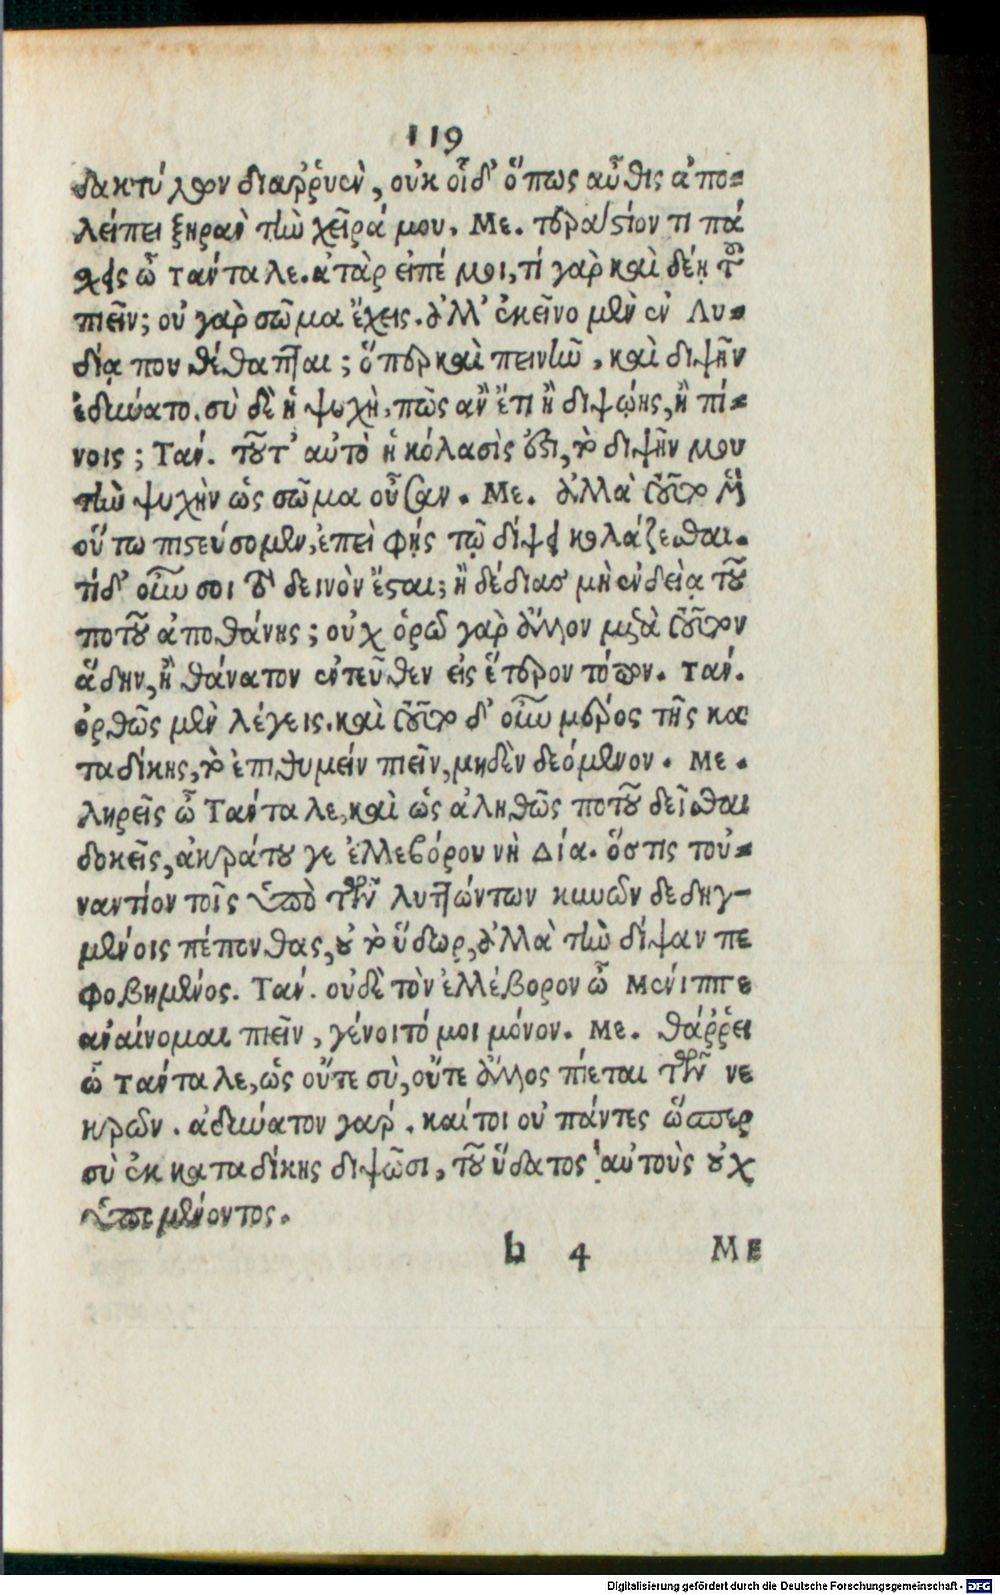 119
δακτύλων διαῤῥυὲν, οὐκ οἶδ' ὅπως αὖθις ἀπο-
λείπει ξηρὰν τὴν χεῖρά μου. Με. τεράστιόν τι πά
σχεις ὦ Τάνταλε. ἀτὰρ εἰπέ μοι, τί γὰρ καὶ δέῃ τοῦ
πιεῖν; οὐ γὰρ σῶμα ἔχεις. ἀλλ' ἐκεῖνο μὲν ἐν Λυ-
δίᾳ που τέθαπται; ὅπερ καὶ πεινῆν, καὶ διψῆν
ἐδύνατο. σὺ δὲ ἡ ψυχὴ, πῶς ἂν ἔτι ἢ διψῴης, ἢ πί-
νοις; Ταν. τοῦτ' αὐτὸ ἡ κόλασίς ἐστι, τὸ διψῆν μου
τὴν ψυχὴν ὡς σῶμα οὖσαν. Με. ἀλλὰ τοῦτο μὲν
οὕτω πιστεύσομεν, ἐπεὶ φῂς τῷ δίψει κολάζεσθαι.
τί δ' οὖν σοι τὸ δεινὸν ἔσται; ἢ δέδιας μὴ ἐνδείᾳ τοῦ
ποτοῦ ἀποθάνῃς; οὐχ ὁρῶ γὰρ ἄλλον μετὰ τοῦτον
ἅδην, ἢ θάνατον ἐντεῦθεν εἰς ἕτερον τόπον. Ταν.
ὀρθῶς μὲν λέγεις. καὶ τοῦτο δ' οὖν μέρος τῆς κα
ταδίκης, τὸ ἐπιθυμεῖν πιεῖν, μηδὲν δεόμενον. Με.
ληρεῖς ὦ Τάνταλε, καὶ ὡς ἀληθῶς ποτοῦ δεῖσθαι
δοκεῖς, ἀκράτου γε ἑλλεβόρου νὴ Δία. ὅστις τοὐ-
ναντίον τοῖς ὑπὸ τῶν λυττώντων κυνῶν δεδηγ-
μένοις πέπονθας, οὐ τὸ ὕδωρ, ἀλλὰ τὴν δίψαν πε
φοβημένος. Ταν. οὐδὲ τὸν ἑλλέβορον ὦ Μένιππε
ἀναίνομαι πιεῖν, γένοιτό μοι μόνον. Με. θάῤῥει
ὦ Τάνταλε, ὡς οὔτε σὺ, οὔτε ἄλλος πίεται τῶν νε
κρῶν. ἀδύνατον γάρ. καίτοι οὐ πάντες ὥσπερ
σὺ ἐκ καταδίκης διψῶσι, τοῦ ὕδατος αὐτοὺς οὐχ
ὑπομένοντος.
h 4 ΜΕ
Digitalisierung gefördert durch die Deutsche Forschungsgemeinschaft - DFG